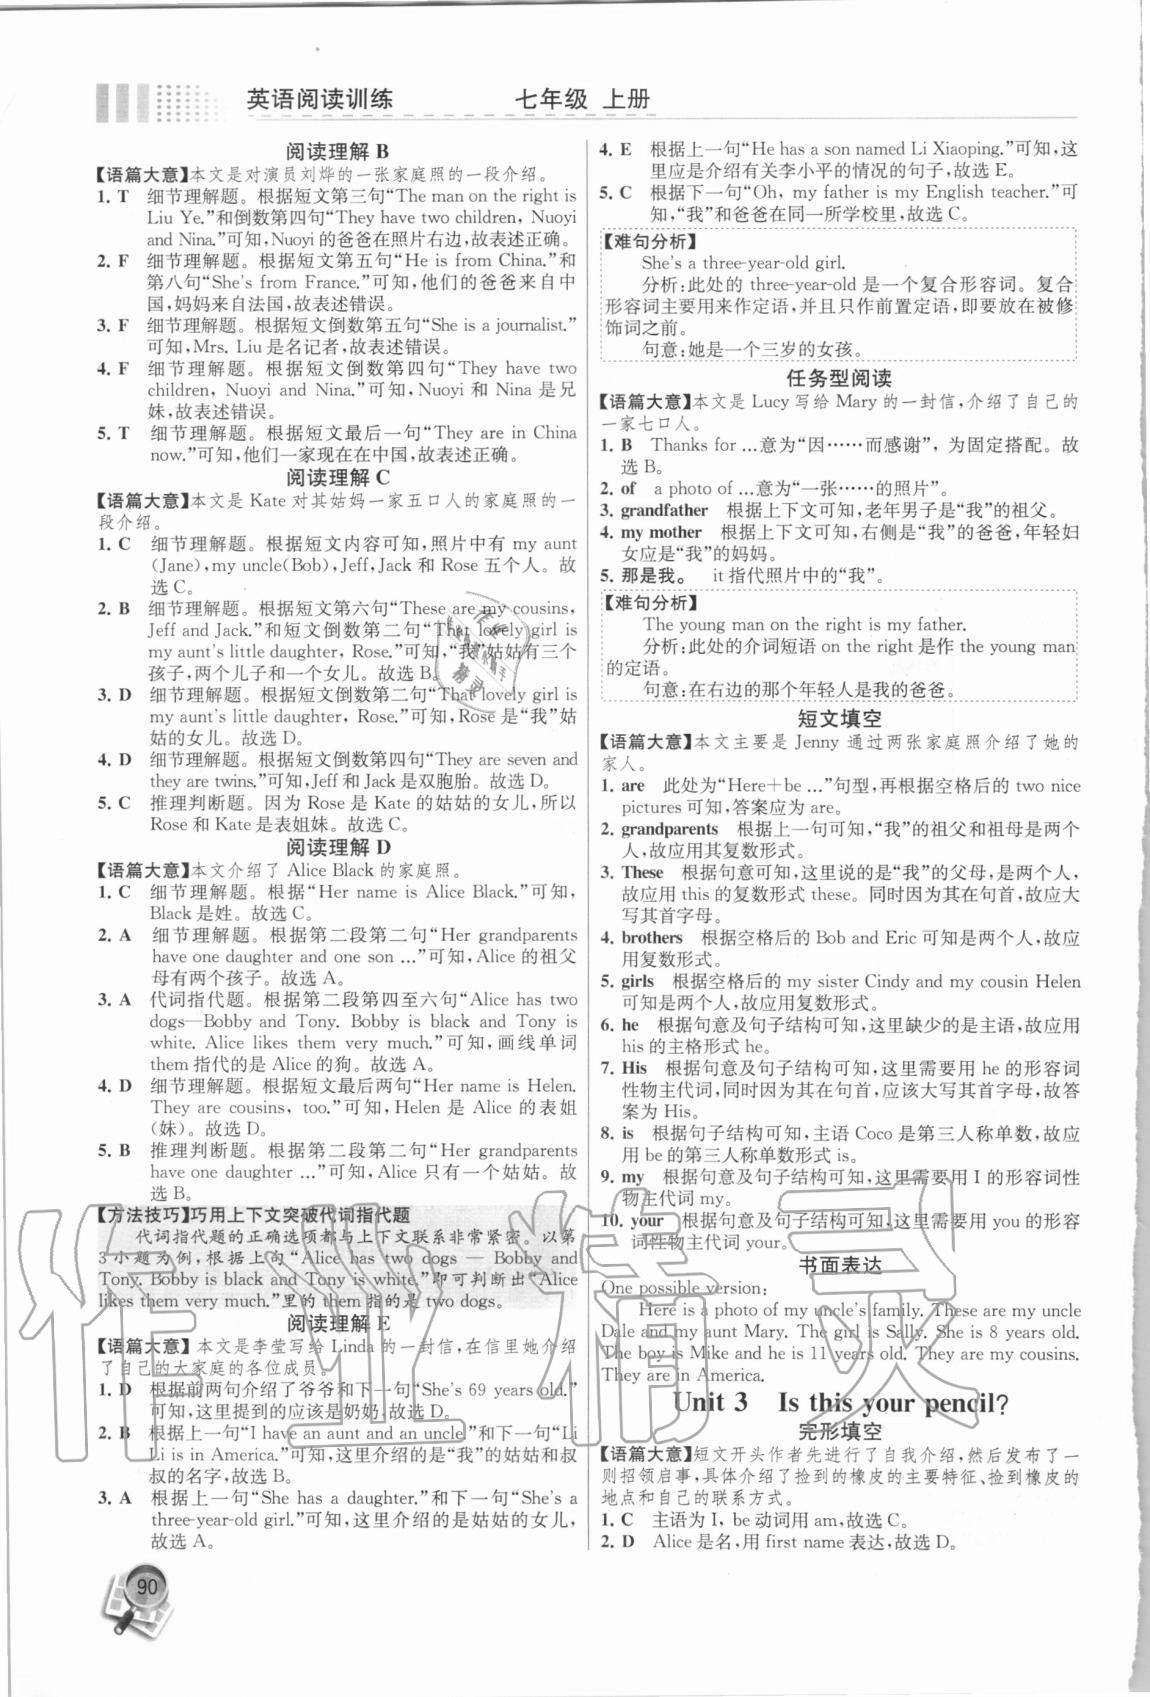 英语阅读训练　七年级 上册
阅读理解 B
【语篇大意】本文是对演员刘烨的一张家庭照的一段介绍。
1. T 细节理解题。根据短文第三句“The man on the right is
Liu Ye.”和倒数第四句“They have two children, Nuoyi
and Nina.”可知, Nuoyi 的爸爸在照片右边,故表述正确。
2. F 细节理解题。根据短文第五句“He is from China.”和
第八句“She's from France.”可知,他们的爸爸来自中
国,妈妈来自法国,故表述错误。
3. F 细节理解题。根据短文倒数第五句“She is a journalist.”
可知,Mrs. Liu 是名记者,故表述错误。
4. F 细节理解题。根据短文倒数第四句“They have two
children, Nuoyi and Nina.”可知,Nuoyi 和 Nina 是兄
妹,故表述错误。
5. T 细节理解题。根据短文最后一句“They are in China
now.”可知,他们一家现在在中国,故表述正确。
阅读理解 C
【语篇大意】本文是 Kate 对其姑妈一家五口人的家庭照的一
段介绍。
1. C 细节理解题。根据短文内容可知,照片中有 my aunt
(Jane),my uncle(Bob),Jeff,Jack 和 Rose 五个人。故
选 C。
2. B 细节理解题。根据短文第六句“These are my cousins,
Jeff and Jack.”和短文倒数第二句“That lovely girl is
my aunt's little daughter, Rose.”可知,“我”姑姑有三个
孩子,两个儿子和一个女儿。故选 B。
3. D 细节理解题。根据短文倒数第二句“That lovely girl is
my aunt's little daughter, Rose.”可知,Rose 是“我”姑
姑的女儿。故选 D。
4. D 细节理解题。根据短文倒数第四句“They are seven and
they are twins.”可知,Jeff 和 Jack 是双胞胎。故选 D。
5. C 推理判断题。因为 Rose 是 Kate 的姑姑的女儿,所以
Rose 和 Kate 是表姐妹。故选 C。
阅读理解 D
【语篇大意】本文介绍了 Alice Black 的家庭照。
1. C 细节理解题。根据“Her name is Alice Black.”可知,
Black 是姓。故选 C。
2. A 细节理解题。根据第二段第二句“Her grandparents
have one daughter and one son ...”可知,Alice 的祖父
母有两个孩子。故选 A。
3. A 代词指代题。根据第二段第四至六句“Alice has two
dogs—Bobby and Tony. Bobby is black and Tony is
white. Alice likes them very much.”可知,画线单词
them 指代的是 Alice 的狗。故选 A。
4. D 细节理解题。根据短文最后两句“Her name is Helen.
They are cousins, too.”可知, Helen 是 Alice 的表姐
(妹)。故选 D。
5. B 推理判断题。根据第二段第二句“Her grandparents
have one daughter ...”可知,Alice 只有一个姑姑。故
选 B。
【方法技巧】巧用上下文突破代词指代题
代词指代题的正确选项都与上下文联系非常紧密。以第
3 小题为例,根据上句“Alice has two dogs — Bobby and
Tony. Bobby is black and Tony is white.”即可判断出“Alice
likes them very much.”里的 them 指的是 two dogs。
阅读理解 E
【语篇大意】本文是李莹写给 Linda 的一封信,在信里她介绍
了自己的大家庭的各位成员。
1. D 根据前两句介绍了爷爷和下一句“She's 69 years old.”
可知,这里提到的应该是奶奶,故选 D。
2. B 根据上一句“I have an aunt and an uncle”和下一句“Li
Li is in America.”可知,这里介绍的是“我”的姑姑和叔
叔的名字,故选 B。
3. A 根据上一句“She has a daughter.”和下一句“She's a
three-year-old girl.”可知,这里介绍的是姑姑的女儿,
故选 A。
4. E 根据上一句“He has a son named Li Xiaoping.”可知,这
里应是介绍有关李小平的情况的句子,故选 E。
5. C 根据下一句“Oh, my father is my English teacher.”可
知,“我”和爸爸在同一所学校里,故选 C。
【难句分析】
She's a three-year-old girl.
分析:此处的 three-year-old 是一个复合形容词。复合
形容词主要用来作定语,并且只作前置定语,即要放在被修
饰词之前。
句意:她是一个三岁的女孩。
任务型阅读
【语篇大意】本文是 Lucy 写给 Mary 的一封信,介绍了自己的
一家七口人。
1. B Thanks for ...意为“因……而感谢”,为固定搭配。故
选 B。
2. of a photo of ...意为“一张……的照片”。
3. grandfather 根据上下文可知,老年男子是“我”的祖父。
4. my mother 根据上下文可知,右侧是“我”的爸爸,年轻妇
女应是“我”的妈妈。
5. 那是我。 it 指代照片中的“我”。
【难句分析】
The young man on the right is my father.
分析:此处的介词短语 on the right 是作 the young man
的定语。
句意:在右边的那个年轻人是我的爸爸。
短文填空
【语篇大意】本文主要是 Jenny 通过两张家庭照介绍了她的
家人。
1. are 此处为“Here+be ...”句型,再根据空格后的 two nice
pictures 可知,答案应为 are。
2. grandparents 根据上一句可知,“我”的祖父和祖母是两个
人,故应用其复数形式。
3. These 根据句意可知,这里说的是“我”的父母,是两个人,
故应用 this 的复数形式 these。同时因为在句首,故应大
写其首字母。
4. brothers 根据空格后的 Bob and Eric 可知是两个人,故应
用复数形式。
5. girls 根据空格后的 my sister Cindy and my cousin Helen
可知是两个人,故应用复数形式。
6. he 根据句意及句子结构可知,这里缺少的是主语,故应用
his 的主格形式 he。
7. His 根据句意及句子结构可知,这里应用 he 的形容词
性物主代词,同时因为在句首,应该大写其首字母,故答
案为 His。
8. is 根据句子结构可知,主语 Coco 是第三人称单数,故应
用 be 的第三人称单数形式 is。
9. my 根据句意及句子结构可知,这里需要用 I 的形容词性
物主代词 my。
10. your 根据句意及句子结构可知,这里需要用 you 的形容
词性物主代词 your。
书面表达
One possible version:
Here is a photo of my uncle's family. These are my uncle
Dale and my aunt Mary. The girl is Sally. She is 8 years old.
The boy is Mike and he is 11 years old. They are my cousins.
They are in America.
Unit 3 Is this your pencil?
完形填空
【语篇大意】短文开头作者先进行了自我介绍,然后发布了一
则招领启事,具体介绍了捡到的橡皮的主要特征、捡到橡皮的
地点和自己的联系方式。
1. C 主语为 I, be 动词用 am,故选 C。
2. D Alice 是名,用 first name 表达,故选 D。
90
作业精灵